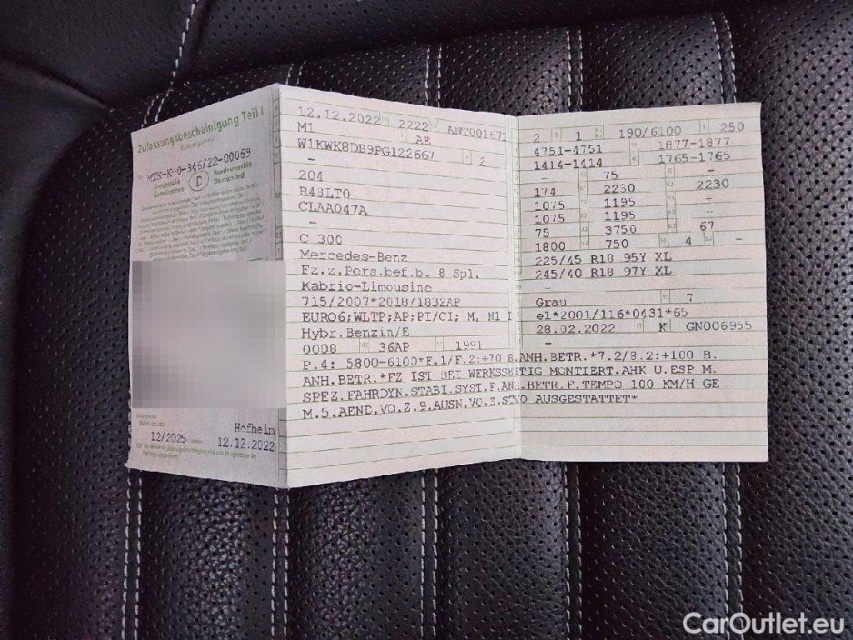 Zulassungsbescheinigung Teil I
MTK-K-0-345/22-00069
Europäische Gemeinschaft D Bundesrepublik Deutschland
Hofheim
12/2025
12.12.2022
12.12.2022 2222 ANT00167
M1 AE
W1KWK8DB9PG122667 2
-
204
R48LT0
CLAA047A
-
C 300
Mercedes-Benz
Fz.z.Pers.bef.b. 8 Spl.
Kabrio-Limousine
715/2007*2018/1832AP
EURO6;WLTP;AP;PI/CI; M, N1 I
Hybr.Benzin/E
0008 36AP 1991
P.4: 5800-6100*F.1/F.2:+70 B.ANH.BETR.*7.2/8.2:+100 B.
ANH.BETR.*FZ IST BEI WERKSSEITIG MONTIERT.AHK U.ESP M.
SPEZ.FAHRDYN.STABI.SYST.F.AN.BETR.F.TEMPO 100 KM/H GE
M.5.AEND.VO.Z.9.AUSN.VO.Z.STVO AUSGESTATTET*
2 1 190/6100 250
4751-4751 1877-1877
1414-1414 1765-1765
- 75 -
174 2230 2230
1075 1195 -
1075 1195 -
75 3750 67
1800 750 4 -
225/45 R18 95Y XL
245/40 R18 97Y XL
-
Grau 7
e1*2001/116*0431*65
28.02.2022 K GN006955
-
CarOutlet.eu